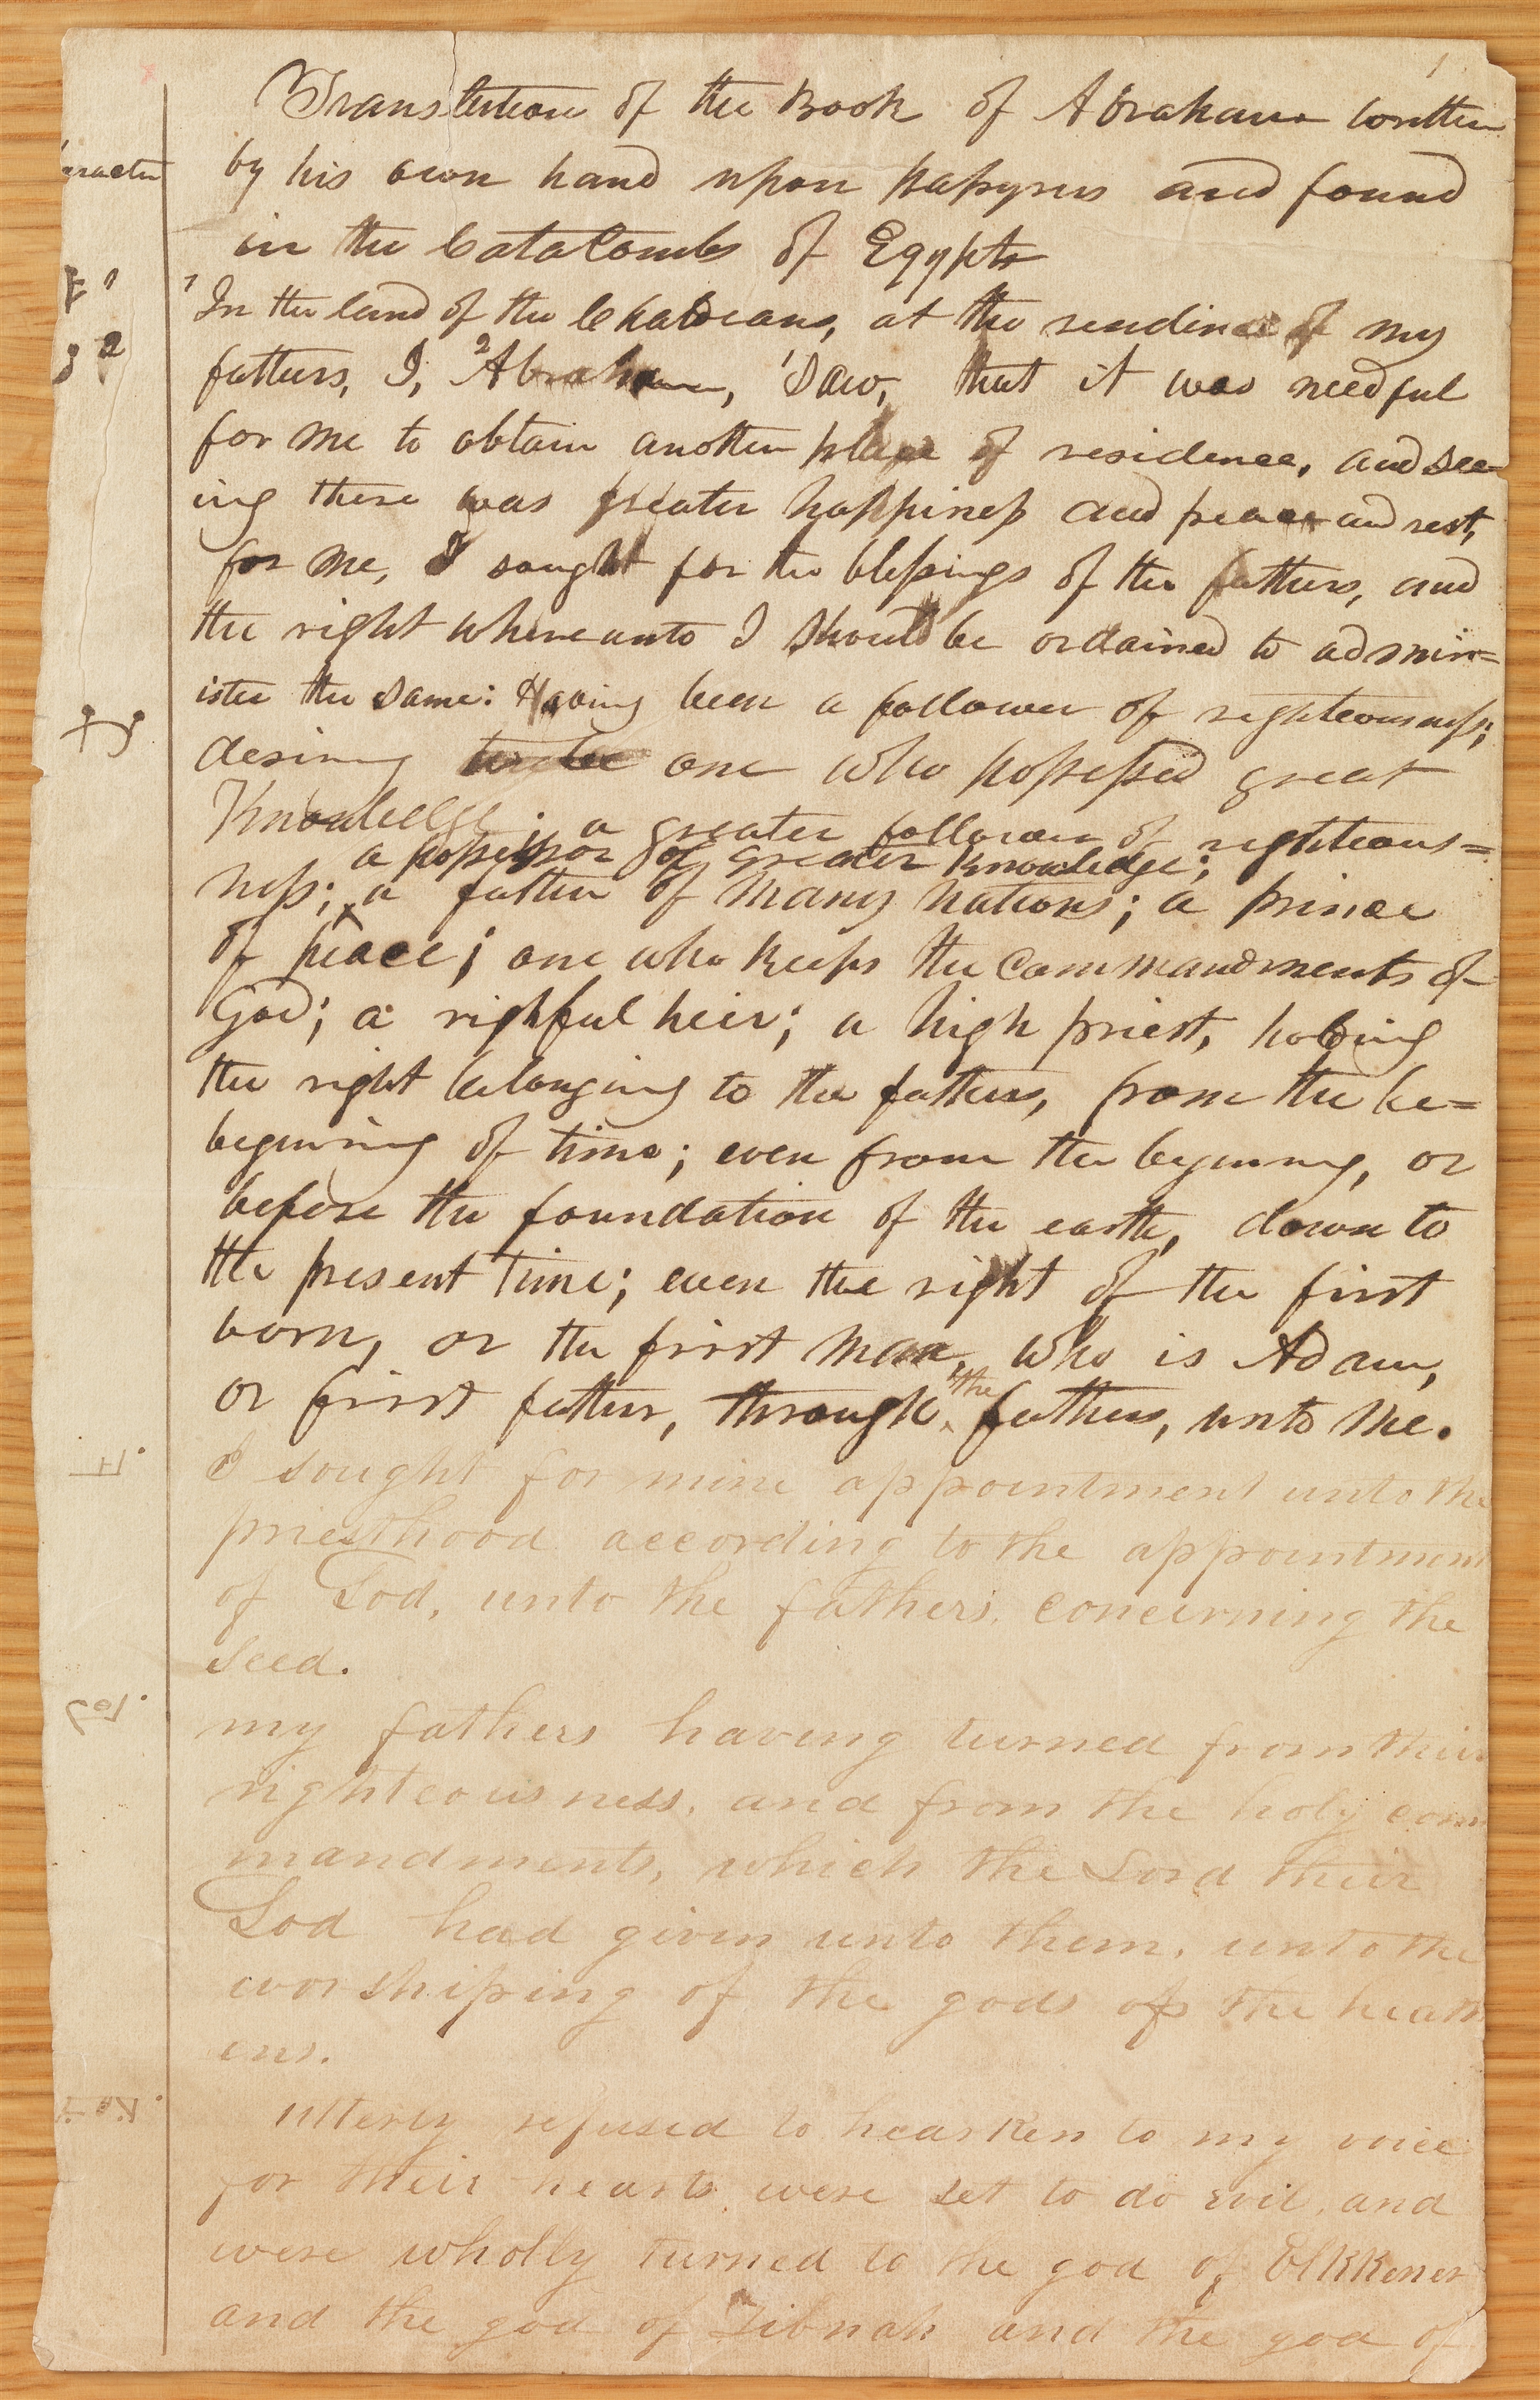 1
Translation of the Book of Abraham written
by his own hand upon papyrus and found
in the CataCombs of Egypts
1 In the land of the Chaldeans, at the residince of my
fathers, I, 2Abraham, 1saw, that it was needful
for me to obtain another place of residence, and see-
ing there was greater happiness and peace and rest,
for me, I sought for the blessings of the fathers, and
the right whereunto I should be ordained to admin=
ister the same: Having been a follower of righteousness;
desiring one who possessed great
Knowledge; a greater follower of righteous=
a possessor of greater Knowledge;
ness; a father of many nations; a prince
of peace; one who keeps the commandments of
God; a rightful heir; a high priest, holding
the right belonging to the fathers, from the be=
begining of time; even from the begining, or
before the foundation of the earth, down to
the present time; even the right of the first
born, or the first man, who is Adam,
or first father, through the fathers, unto me.
I sought for mine appointment unto the
priesthood according to the appointment
of God, unto the fathers, concerning the
seed.
my fathers having turned from their
righteousness, and from the holy com
mandments, which the Lord their
God had given unto them, unto the
worshiping of the gods of the heath
ens.
utterly refused to hearken to my voice
for their hearts were set to do evil, and
were wholly turned to the god of Elkkener
and the god of Zibnah and the god of